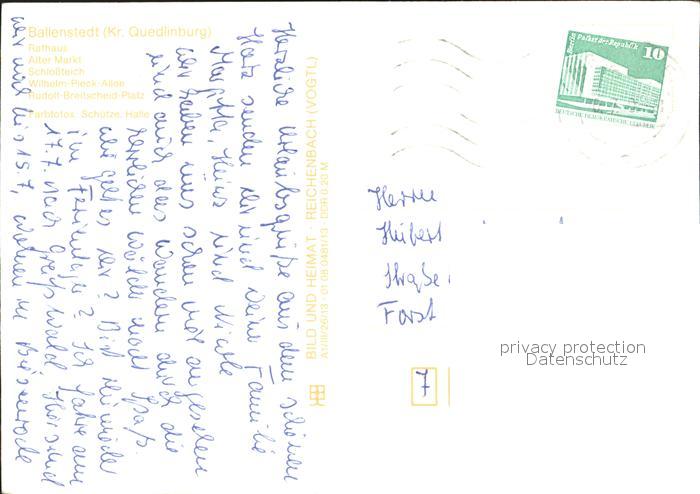 Ballenstedt (Kr. Quedlinburg)
Rathaus
Alter Markt
Schloßteich
Wilhelm-Pieck-Allee
Rudolf-Breitscheid-Platz
Farbfotos: Schütze, Halle
Herzliche Urlaubsgrüße aus dem schönen
Harz senden dir und deine Familie
Margitta, Heinz und Nicole
wir haben uns schon viel angesehen
und auch das Wandern durch die
herrlichen Wälder macht Spaß.
wie geht es dir? Bist du wieder
im Ferienlager? Ich fahre am
17.7. nach Greifswald. Hier sind
wir nur bis 15.7. wohnen in
BILD UND HEIMAT · REICHENBACH (VOGTL)
A1/III/26/13 · 01 08 0481/13 · DDR 0,20 M
Berlin Palast der Republik
10
DEUTSCHE DEMOKRATISCHE REPUBLIK
Herrn
Straße
Forst
7
privacy protection
Datenschutz